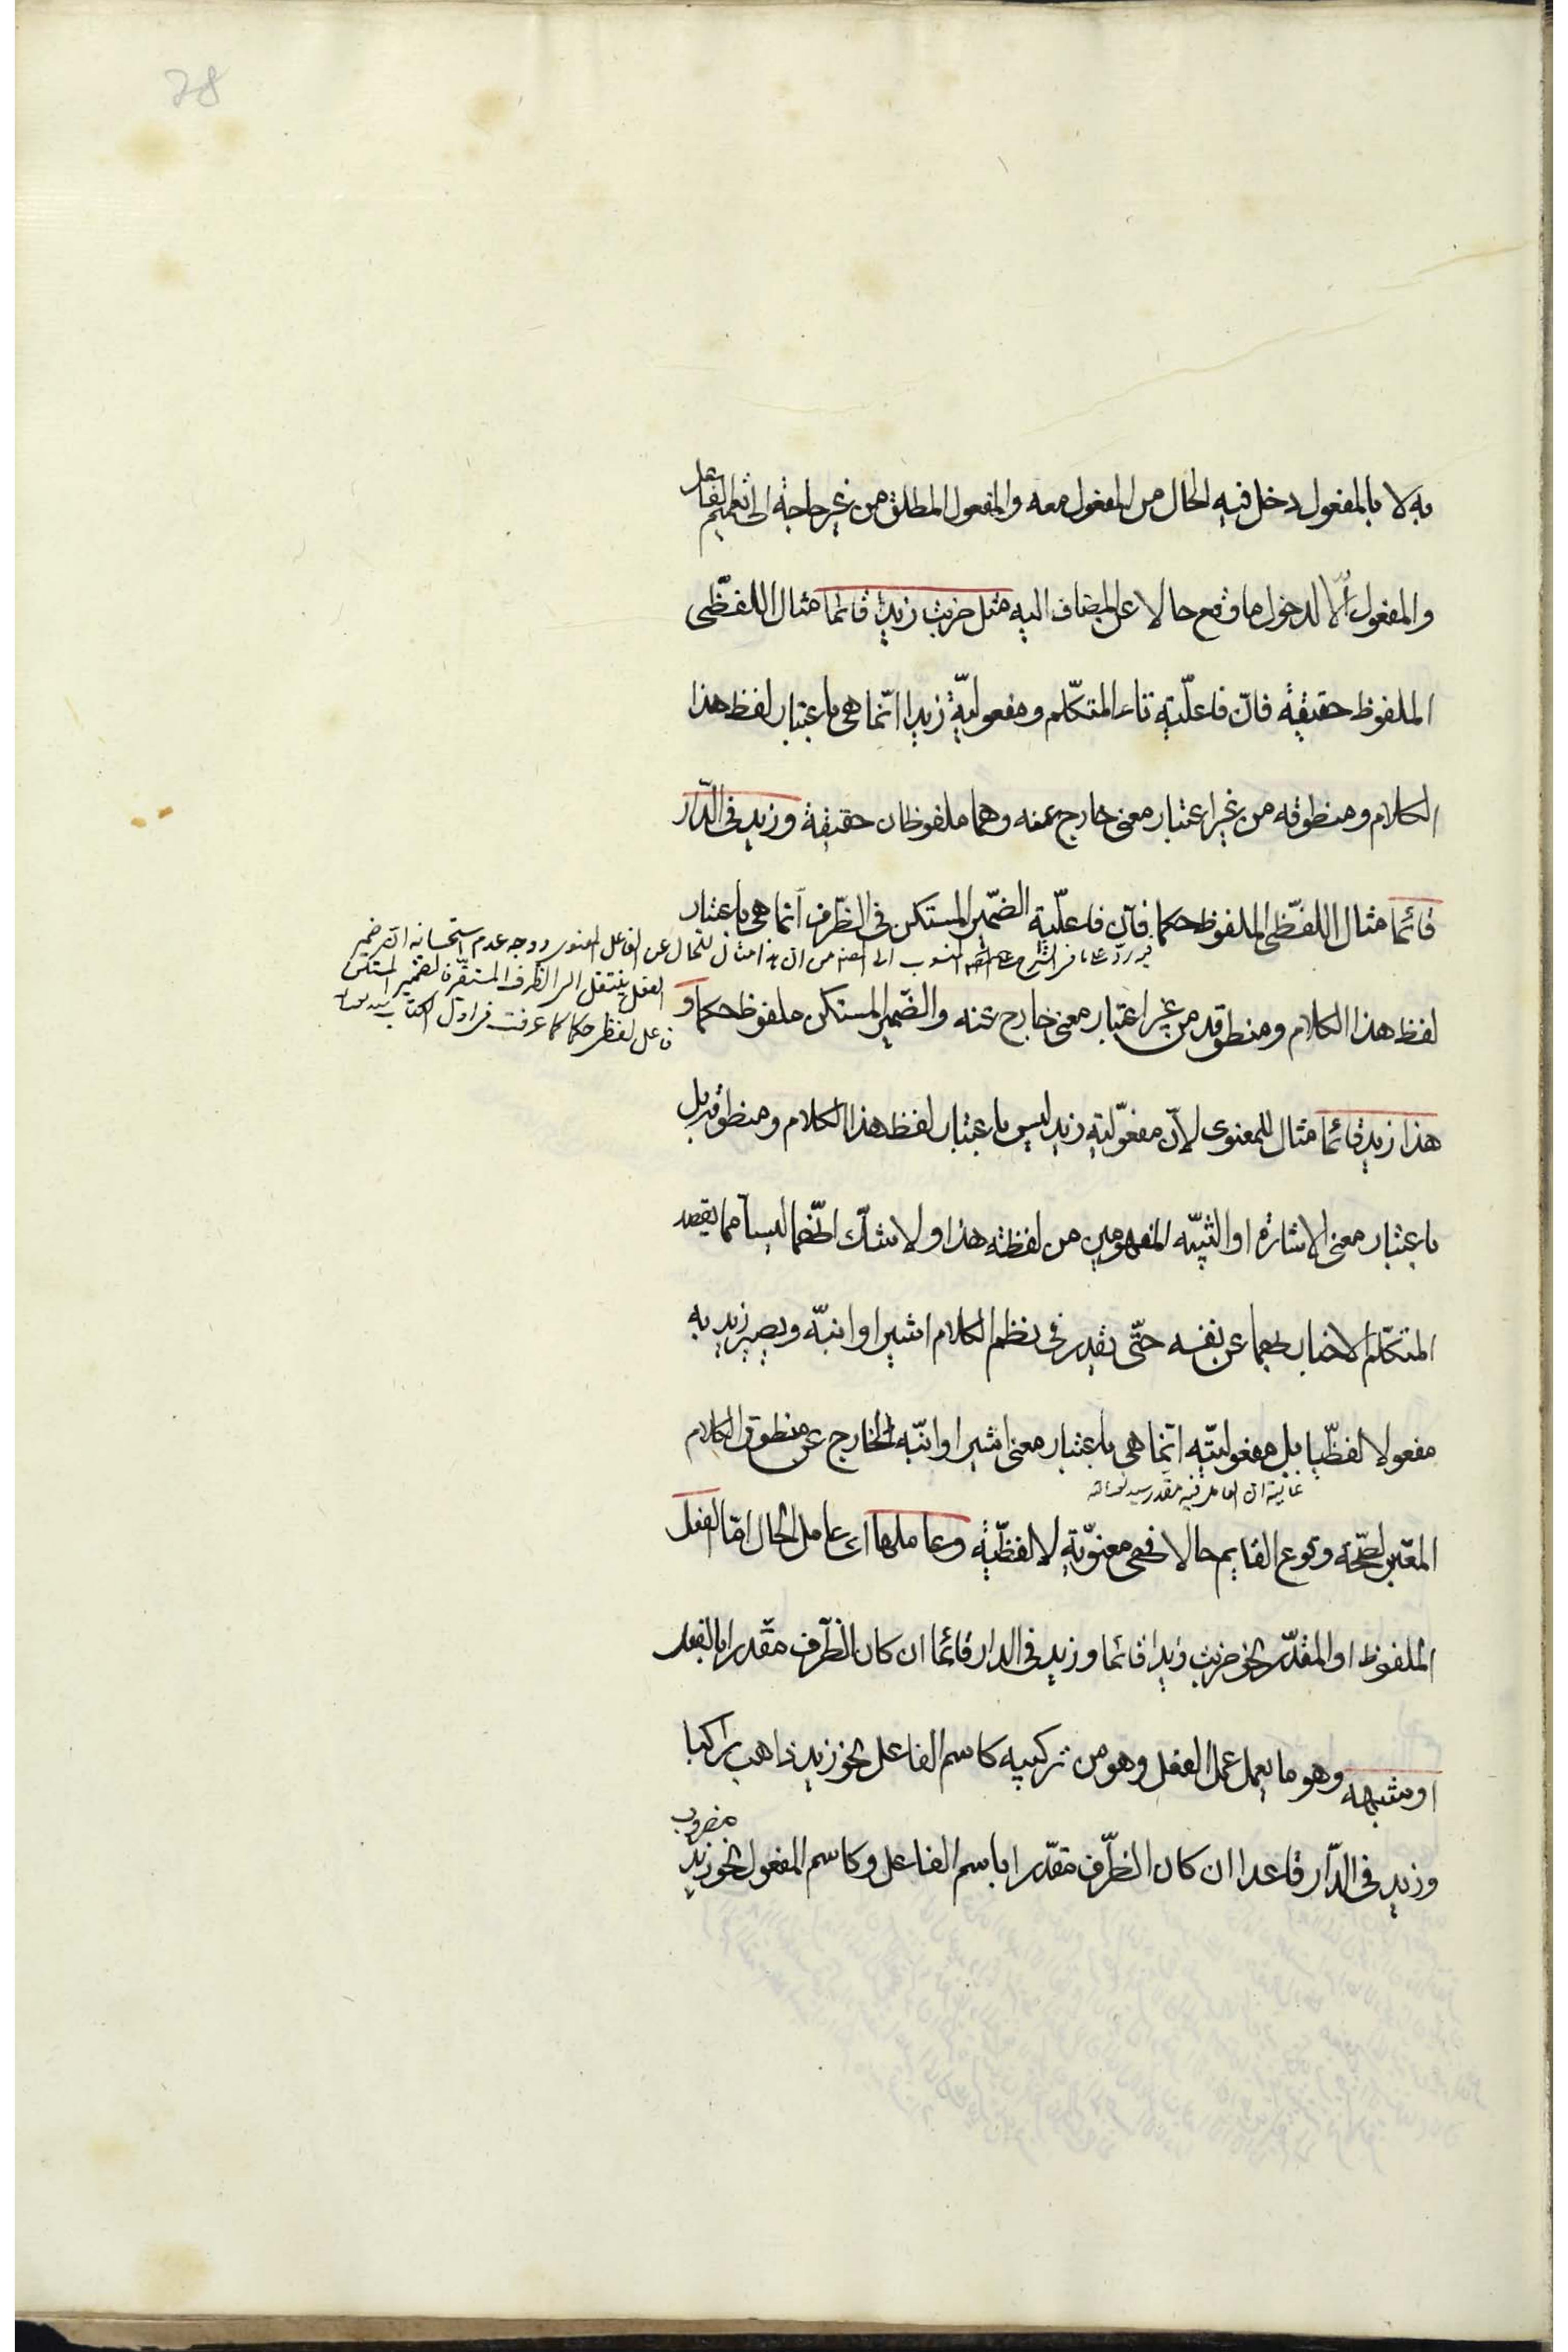 28
به لا بالمفعول دخل فيه الحال من المفعول معه والمفعول المطلق من غير حاجة الى تعميم الفاعل
والمفعول الا لدخول ما وقع حالا عن المضاف اليه مثل ضربت زيدا قائما مثال اللفظى
الملفوظ حقيقة فان فاعلية تاء المتكلم ومفعولية زيدا انما هى باعتبار لفظ هذا
الكلام ومنطوقه من غير اعتبار معنى خارج عنه وهما ملفوظان حقيقة وزيد فى الدار
قائما مثال اللفظى الملفوظ حكما فان فاعلية الضمير المستكن فى الظرف انما هى باعتبار
المنسوب الى المصنف من ان هذا مثال للحال عن الفاعل المعنوى ووجه عدم استحسانه ان ضمير
الفعل ينتقل الى الظرف المستقر فالضمير المستكن
فاعل لفظى حكما كما عرفت فى اول الكتاب
لفظ هذا الكلام ومنطوقه من غير اعتبار معنى خارج عنه والضمير المستكن ملفوظ حكما و
هذا زيد قائما مثال للمعنوى لان مفعولية زيد ليس باعتبار لفظ هذا الكلام ومنطوقه بل
باعتبار معنى الاشارة او التنبيه المفهومين من لفظة هذا ولا شك انهما ليسا مما يقصد
المتكلم الاخبار بهما عن نفسه حتى يقدر فى نظم الكلام اشير او انبه ويصير زيد به
مفعولا لفظيا بل مفعوليته انما هى باعتبار معنى اشير او انبه الخارج عن منطوق الكلام
غايته ان العامل فيه مقدر
المعتبر لصحة وقوع القايم حالا فهى معنوية لا لفظية وعاملها اى عامل الحال اما الفعل
الملفوظ او المقدر نحو ضربت زيدا قائما وزيد فى الدار قائما ان كان الظرف مقدرا بالفعل
او شبهه وهو ما يعمل عمل الفعل وهو من تركيبه كاسم الفاعل نحو زيد ذاهب راكبا
وزيد فى الدار قاعدا ان كان الظرف مقدرا باسم الفاعل وكاسم المفعول نحو زيد مضروب